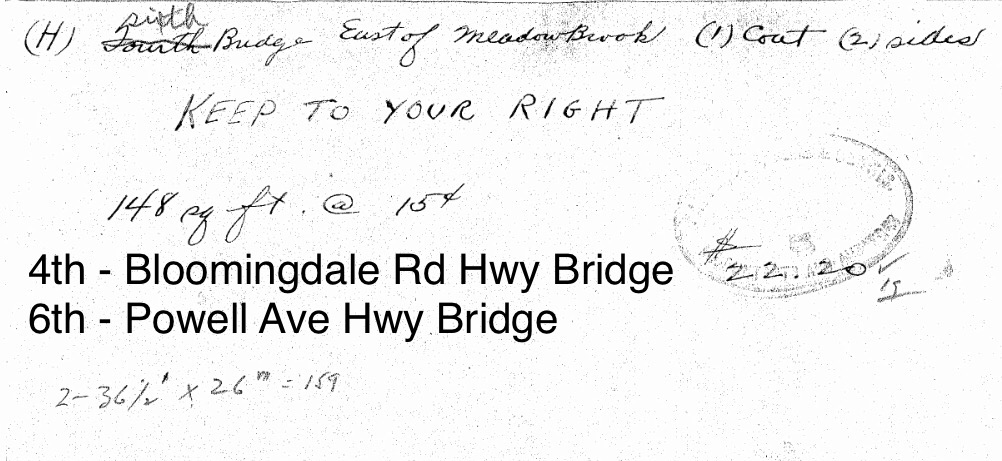 sixth
(H) Fourth Bridge East of Meadow Brook (1) Coat (2) sides
KEEP TO YOUR RIGHT
148 sq ft. @ 15¢
$22.20
4th - Bloomingdale Rd Hwy Bridge
6th - Powell Ave Hwy Bridge
2-36½' x 26" = 159